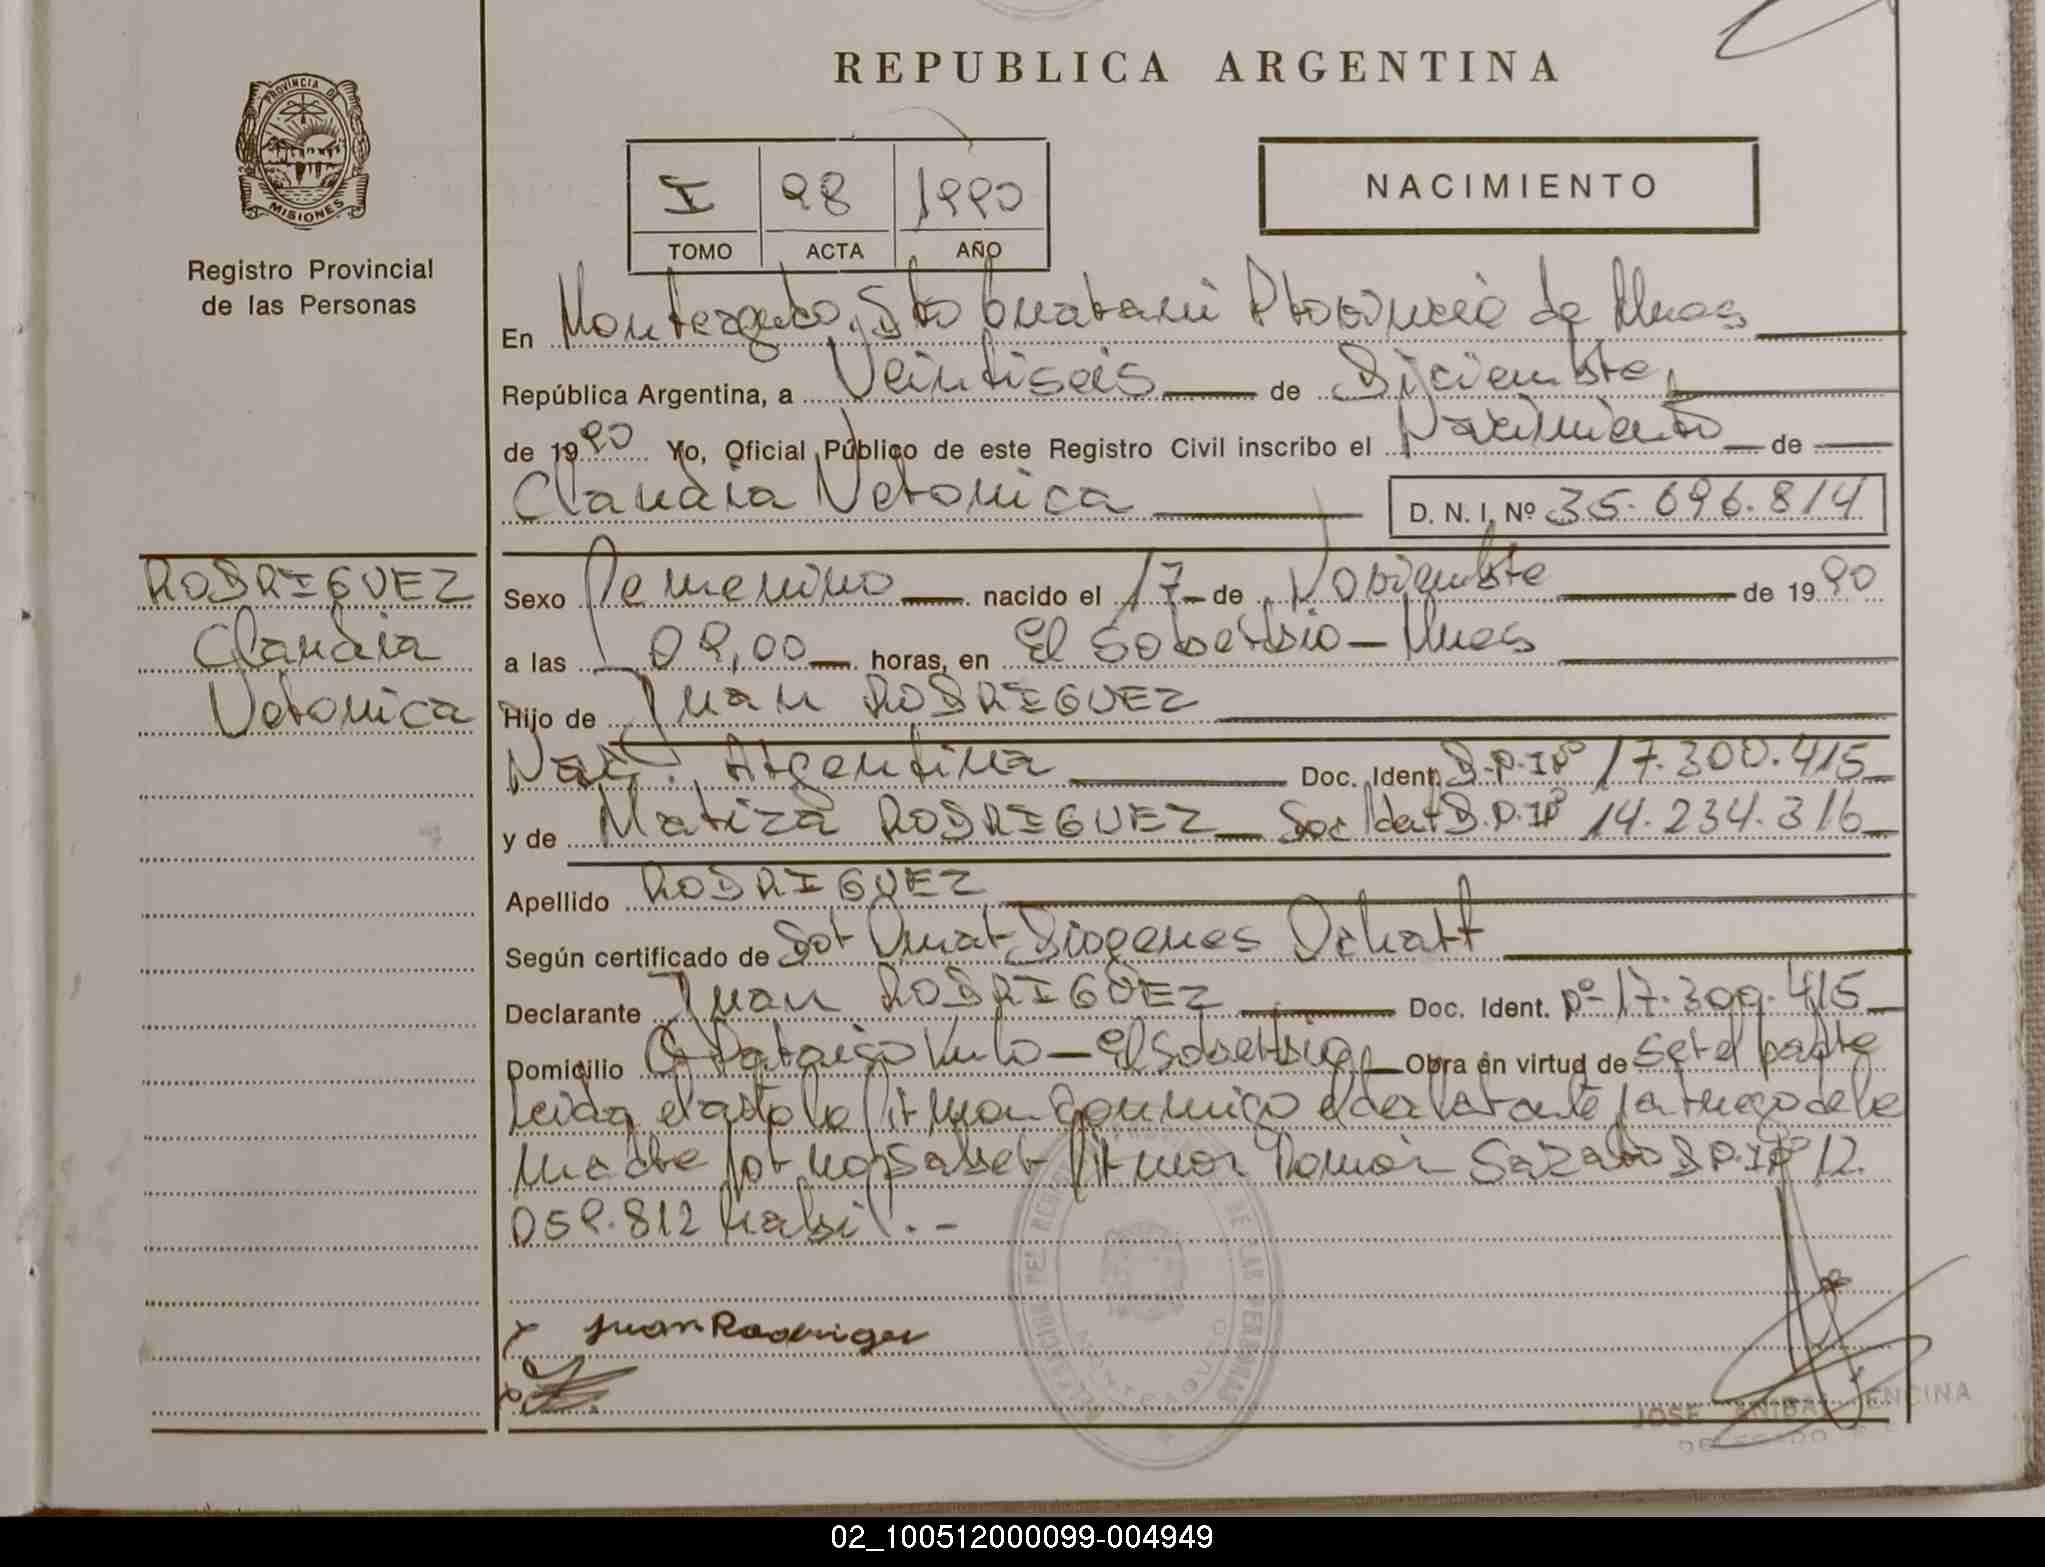 REPUBLICA ARGENTINA
PROVINCIA DE
MISIONES
Registro Provincial
de las Personas
I 98 1990
TOMO ACTA AÑO
NACIMIENTO
En Monteagudo, Dto Guarani Provincia de Mnes
República Argentina, a Veintiseis de Diciembre,
de 1990 Yo, Oficial Público de este Registro Civil inscribo el Nacimiento de
Claudia Veronica D. N. I. Nº 35.696.814
RODRIGUEZ
Claudia
Veronica
Sexo Femenino nacido el 17 de Noviembre de 1990
a las 09,00 horas, en El Soberbio - Mnes
Hijo de Juan RODRIGUEZ
Nac. Argentina Doc. Ident. D.N.Iº 17.300.415
y de Matiza RODRIGUEZ Doc Ident D.N.Iº 14.234.316
Apellido RODRIGUEZ
Según certificado de Dor Omar Diogenes Ochatt
Declarante Juan RODRIGUEZ Doc. Ident. Nº 17.300.415
Domicilio Paraiso - El Soberbio Obra en virtud de ser el padre
Leida el acta la firman conmigo el declarante y a ruego de la
madre por no saber firmar Ramon D.N.Iº 12.
059.812 habil.-
x Juan Rodriguez
MONTEAGUDO
JOSE ANIBAL ENCINA
DELEGADO
02_100512000099-004949